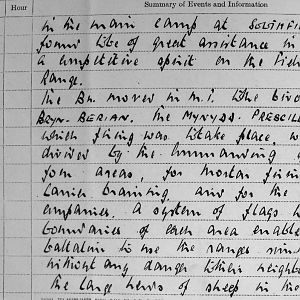 Hour Summary of Events and Information
in the main camp at SOUTH
found to be of great assistance in
a competitive spirit on the
Range.
The Bn. moved in M.T. to the
BRYN- BERIAN. The MYNYDD- PRESCELL
which firing was to take place, w
divided by the Commanding
for areas, for mortar
Carrier training, and for the
companies. A system of flags
boundaries of each area enable
battalion to use the ranges
without any danger to their neighb
the large herds of sheep in